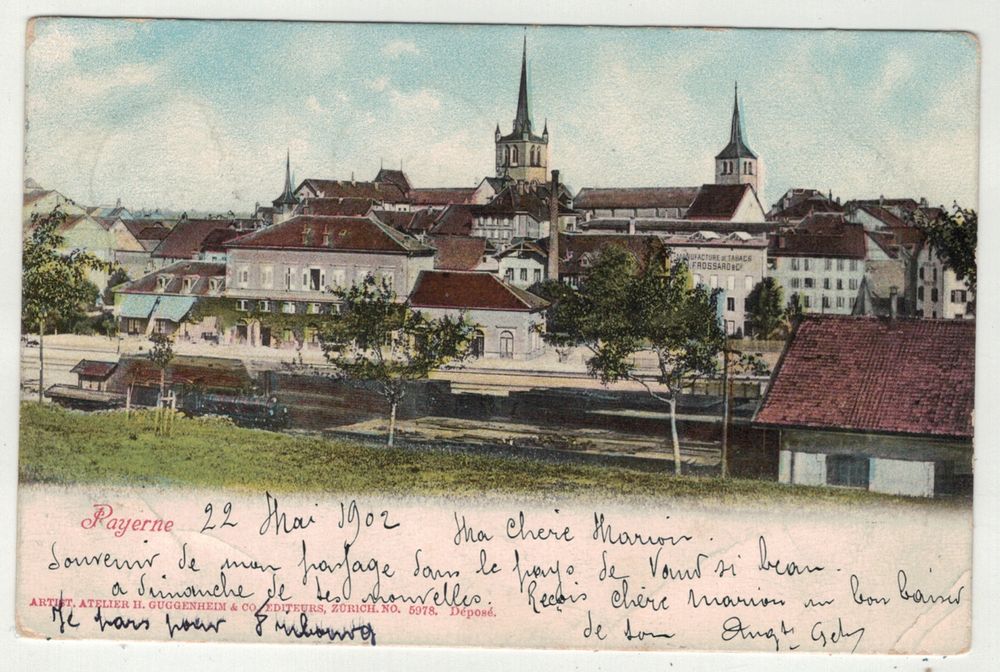 MANUFACTURE DE TABACS
FROSSARD & Cᵒ
Payerne 22 Mai 1902 Ma chère Marion.
Souvenir de mon passage dans le pays de Vaud si beau.
a dimanche de tes nouvelles. Reçois chère Marion un bon baiser
ARTIST. ATELIER H. GUGGENHEIM & CO., EDITEURS, ZÜRICH. NO. 5978. Déposé.
Je pars pour Fribourg de ton